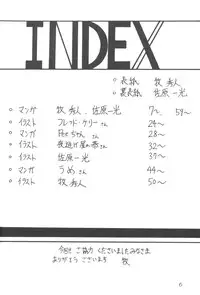 INDEX
○ 表紙 牧 秀人
○ 裏表紙 佐原 一光
○ マンガ 牧 秀人、佐原一光 7〜、59〜
○ イラスト フレッド・ケリーさん 24〜
○ マンガ Peeちゃんさん 28〜
○ イラスト さん 32〜
○ イラスト 佐原 一光 39〜
○ マンガ うめさん 44〜
○ イラスト 牧 秀人 50〜
今回ご協力くださいましたみなさま
ありがとうございます 牧
6